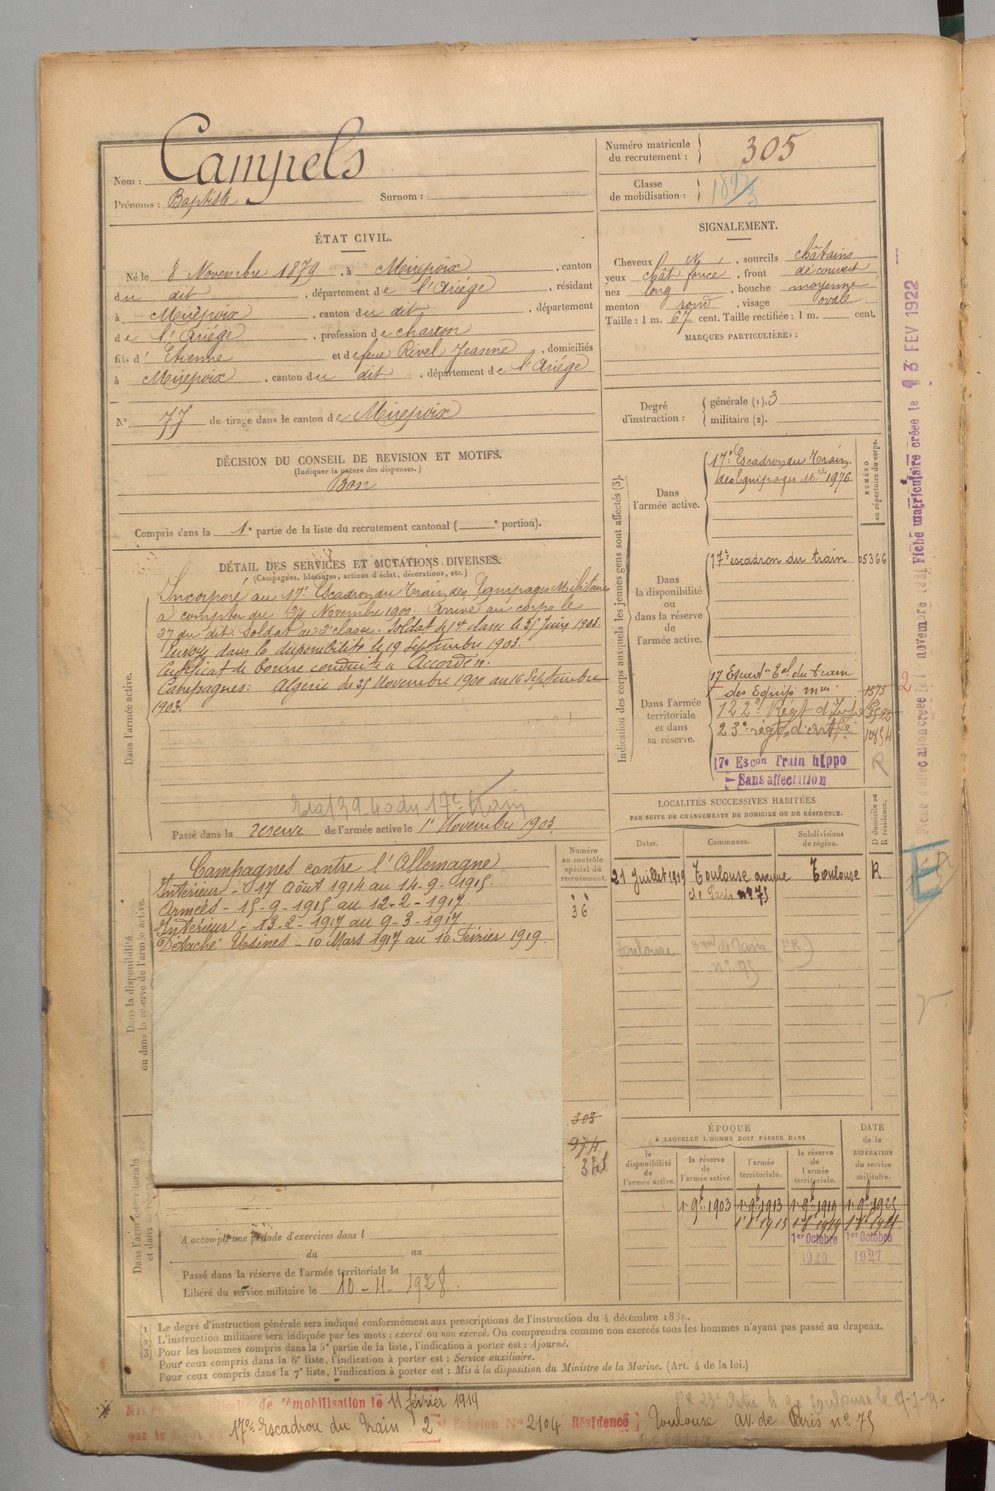 Nom : Campels
Prénoms : Baptiste Surnom :
Numéro matricule du recrutement : 305
Classe de mobilisation :
ÉTAT CIVIL.
Né le 8 Novembre 1879, à Mirepoix, canton
du dit, département de l'Ariège, résidant
à Mirepoix, canton du dit, département
de l'Ariége, profession de charron
fils d'Etienne et de feue Rivel Jeanne, domiciliés
à Mirepoix, canton du dit, département de l'Ariège
N° 77 de tirage dans le canton de Mirepoix
SIGNALEMENT.
Cheveux et, sourcils châtains
yeux chât foncé, front découvert
nez long, bouche moyenne
menton rond, visage ovale
Taille : 1 m. 67 cent. Taille rectifiée : 1 m. cent.
MARQUES PARTICULIÈRES :
Degré d'instruction : générale (1). 3
militaire (2).
DÉCISION DU CONSEIL DE REVISION ET MOTIFS.
(Indiquer la nature des dispenses.)
Bon
Compris dans la 1e partie de la liste du recrutement cantonal ( e portion).
DÉTAIL DES SERVICES ET MUTATIONS DIVERSES.
(Campagnes, blessures, actions d'éclat, décorations, etc.)
Dans l'armée active.
Incorporé au 17e Escadron du Train des Equipages Militaires
à compter du Novembre 1900. Arrivé au corps le
27 du dit. Soldat de 2e classe. Soldat de 1re classe le 25 Juin 1903.
Envoyé dans la disponibilité le 19 Septembre 1903.
Certificat de bonne conduite "Accordé".
Campagnes : Algérie du 25 Novembre 1900 au 16 Septembre
1903.
Passé dans la réserve de l'armée active le 1er Novembre 1903.
Dans la disponibilité ou dans la réserve de l'armée active.
Campagnes contre l'Allemagne
Intérieur - 17 Août 1914 au 14-9-1915.
Armées - 15-9-1915 au 12-2-1917
Intérieur - 13-2-1917 au 9-3-1917
Détaché Usines - 10 Mars 1917 au 10 Février 1919
Numéro au contrôle spécial du recrutement.
36
303
974
Indication des corps auxquels les jeunes gens sont affectés (3).
NUMÉRO au répertoire du corps.
Dans l'armée active.
17e Escadron du Train
des Equipages Mle 1976
Dans la disponibilité ou dans la réserve de l'armée active.
17e escadron du train 05366
Dans l'armée territoriale et dans sa réserve.
17 Escad-Eal du train
des Equip mres 1575
122e Régt d'Inf
23e régt d'artie
17e Escon Train hippo
Sans affectation
R
LOCALITÉS SUCCESSIVES HABITÉES
PAR SUITE DE CHANGEMENTS DE DOMICILE OU DE RÉSIDENCE.
Dates. Communes. Subdivisions de région. D domicile ou R résidence.
21 Juillet 1919 Toulouse avenue de Paris n° 75 Toulouse R
Toulouse de Paris (R)
n° 75
ÉPOQUE
À LAQUELLE L'HOMME DOIT PASSER DANS
DATE de la LIBÉRATION du service militaire.
la disponibilité de l'armée active. la réserve de l'armée active. l'armée territoriale. la réserve de l'armée territoriale.
1er 9bre 1903 1er 9bre 1913 1er 9bre 1919 1er 9bre 1925
1er Octobre 1er Octobre
1920 1927
A accompli une période d'exercices dans l
du au
Passé dans la réserve de l'armée territoriale le
Libéré du service militaire le 10-11-1928.
(1) Le degré d'instruction générale sera indiqué conformément aux prescriptions de l'instruction du 4 décembre 1889.
(2) L'instruction militaire sera indiquée par les mots : exercé ou non exercé. On comprendra comme non exercés tous les hommes n'ayant pas passé au drapeau.
(3) Pour les hommes compris dans la 5e partie de la liste, l'indication à porter est : Ajourné.
Pour ceux compris dans la 6e liste, l'indication à porter est : Service auxiliaire.
Pour ceux compris dans la 7e liste, l'indication à porter est : Mis à la disposition du Ministre de la Marine. (Art. 4 de la loi.)
démobilisation le 11 février 1919
17e Escadron du Train 2e Echelon N° 2104 Résidence : Toulouse av. de Paris n° 75
Fiche matriculaire créée le 13 FEV 1922